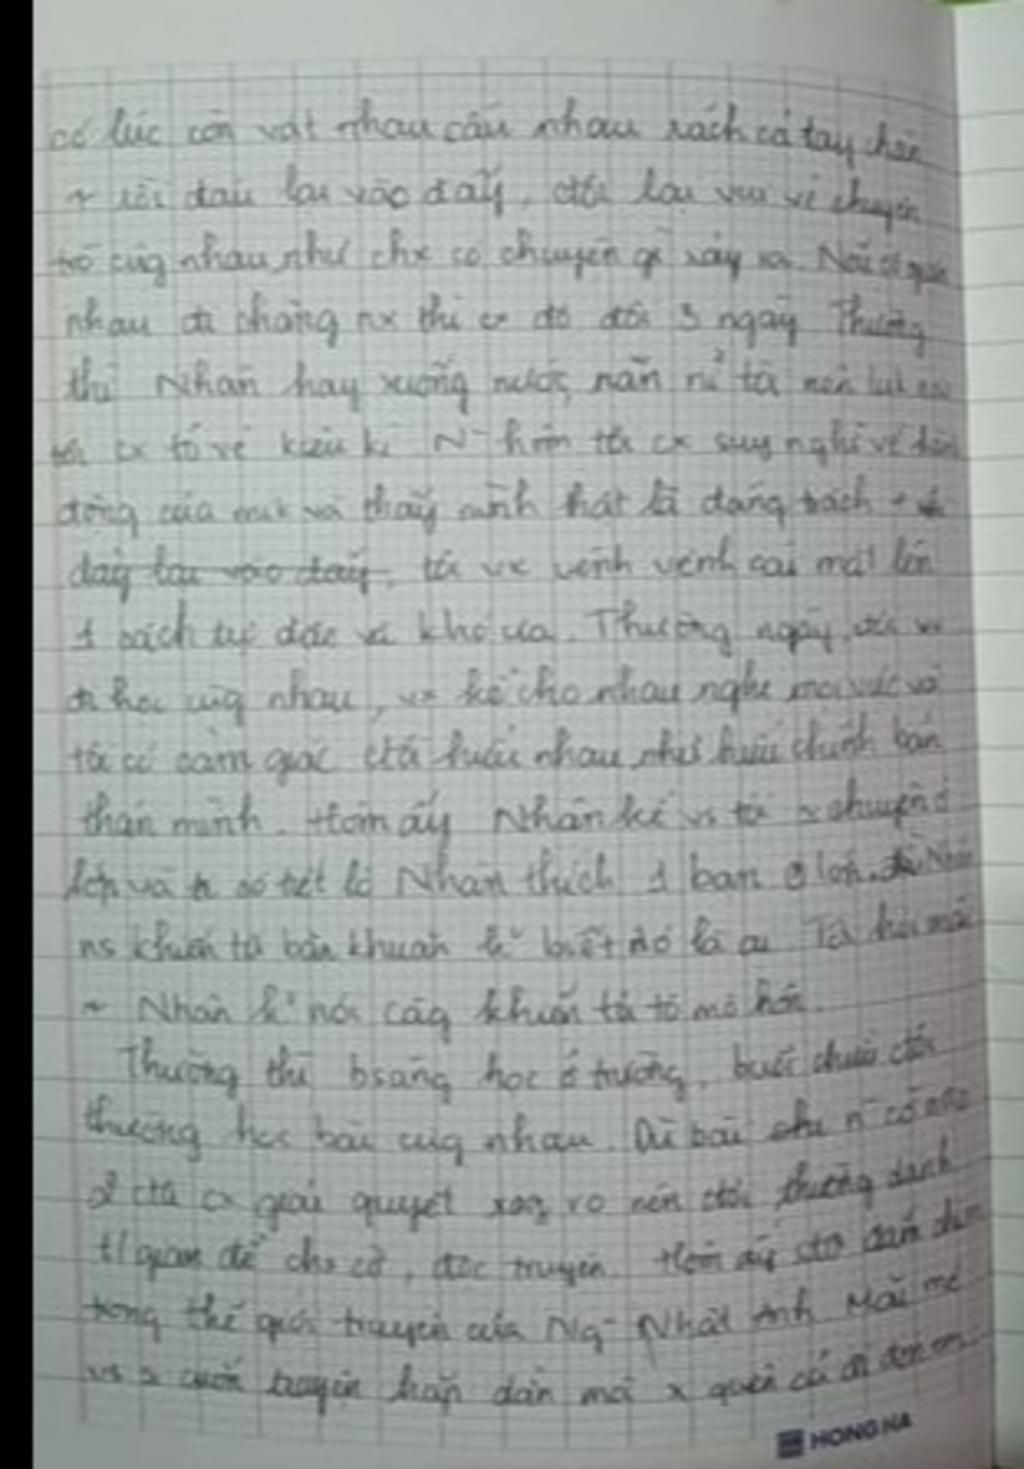 có lúc còn vật nhau cấu nhau rách cả tay chân
rồi đâu lại vào đấy, ctôi lại vui vẻ chuyện
trò cùg nhau như chx có chuyện gì xảy ra. Nói
nhau đi chăng nx thì cx đó đôi 3 ngày Thường
thì Nhân hay xuống nước, năn nỉ tôi nên
tôi cx tỏ vẻ kiêu kì N~ hôm tôi cx suy nghĩ về hành
động của mik và thấy mình thật là đáng trách
đâý lại vào đấy, tôi vx vênh vênh cái mặt lên
1 cách tự đắc và khó ưa. Thường ngày, ctôi vx
đi học cùg nhau, vx kể cho nhau nghe mọi việc và
tôi có cảm giác ctôi hiểu nhau như hiểu chính bản
thân mình. Hôm ấy Nhân kể vs tôi chuyện ở
lớp và tiết lộ Nhân thích 1 bạn ở lớp.
ns khiến tôi băn khoăn k biết nó là ai Tôi hỏi mãi
~ Nhân k nói càg khiến tôi tò mò hơn.
Thường thì bsáng học ở trường, buổi chiều ctôi
thường học bài cùg nhau. Dù bài có
ctôi cx giải quyết xog nên ctôi thường dành
t/gian để chơi cờ, đọc truyện. Hôm ấy ctôi đắm chìm
trong thế giới truyện của Ng~ Nhật Ánh Mải mê
vs cuốn truyện hấp dẫn mà quên cả đi
HONG HA